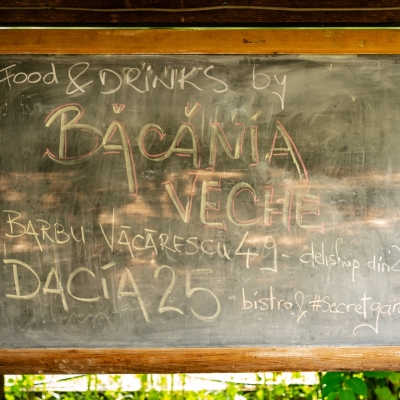 Food & DRINKS by
BĂCĂNIA
VECHE
BARBU VĂCĂRESCU 49 - delishop din 2
DACIA 25 - bistro & #secretgar